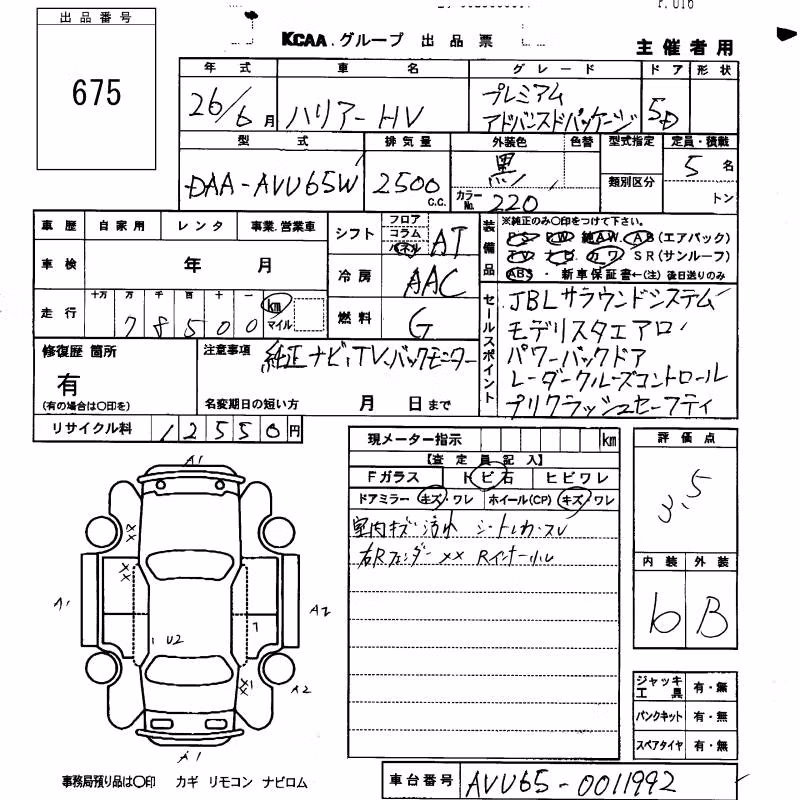 P.016
出品番号
675
KCAA.グループ 出品票
主催者用
年式 車名 グレード ドア 形状
26/6月 ハリアーHV プレミアム アドバンスドパッケージ 5D
型式 排気量 外装色 色替 型式指定 定員・積載
DAA-AVU65W 2500 C.C. 黒 カラーNo. 220 類別区分 5名 トン
車歴 自家用 レンタ 事業.営業車
車検 年 月
走行 十万 万 千 百 十 一
78500 km マイル
シフト フロア コラム パネル AT
冷房 AAC
燃料 G
装備品 ※純正のみ〇印をつけて下さい。
PS PW 純AW AB(エアバック)
TV ナビ カワ SR(サンルーフ)
ABS ・ 新車保証書←(注) 後日送りのみ
セールスポイント
JBLサラウンドシステム
モデリスタエアロ
パワーバックドア
レーダークルーズコントロール
プリクラッシュセーフティ
修復歴 箇所
有
(有の場合は〇印を)
注意事項 純正ナビ、TV、バックモニター
名変期日の短い方 月 日まで
リサイクル料 12550円
現メーター指示 km
【査定員記入】
Fガラス トビ石 ヒビワレ
ドアミラー キズ・ワレ ホイール(CP) キズ・ワレ
室内キズ 汚れ シートレカスレ
右Rフェンダー ×× Rインナー小レ
評価点
3.5
内装 外装
b B
A1
××
××
A1
A2
1 U2
7
×1
×
A2
A1
ジャッキ工具 有・無
パンクキット 有・無
スペアタイヤ 有・無
事務局預り品は〇印 カギ リモコン ナビロム
車台番号 AVU65-0011992